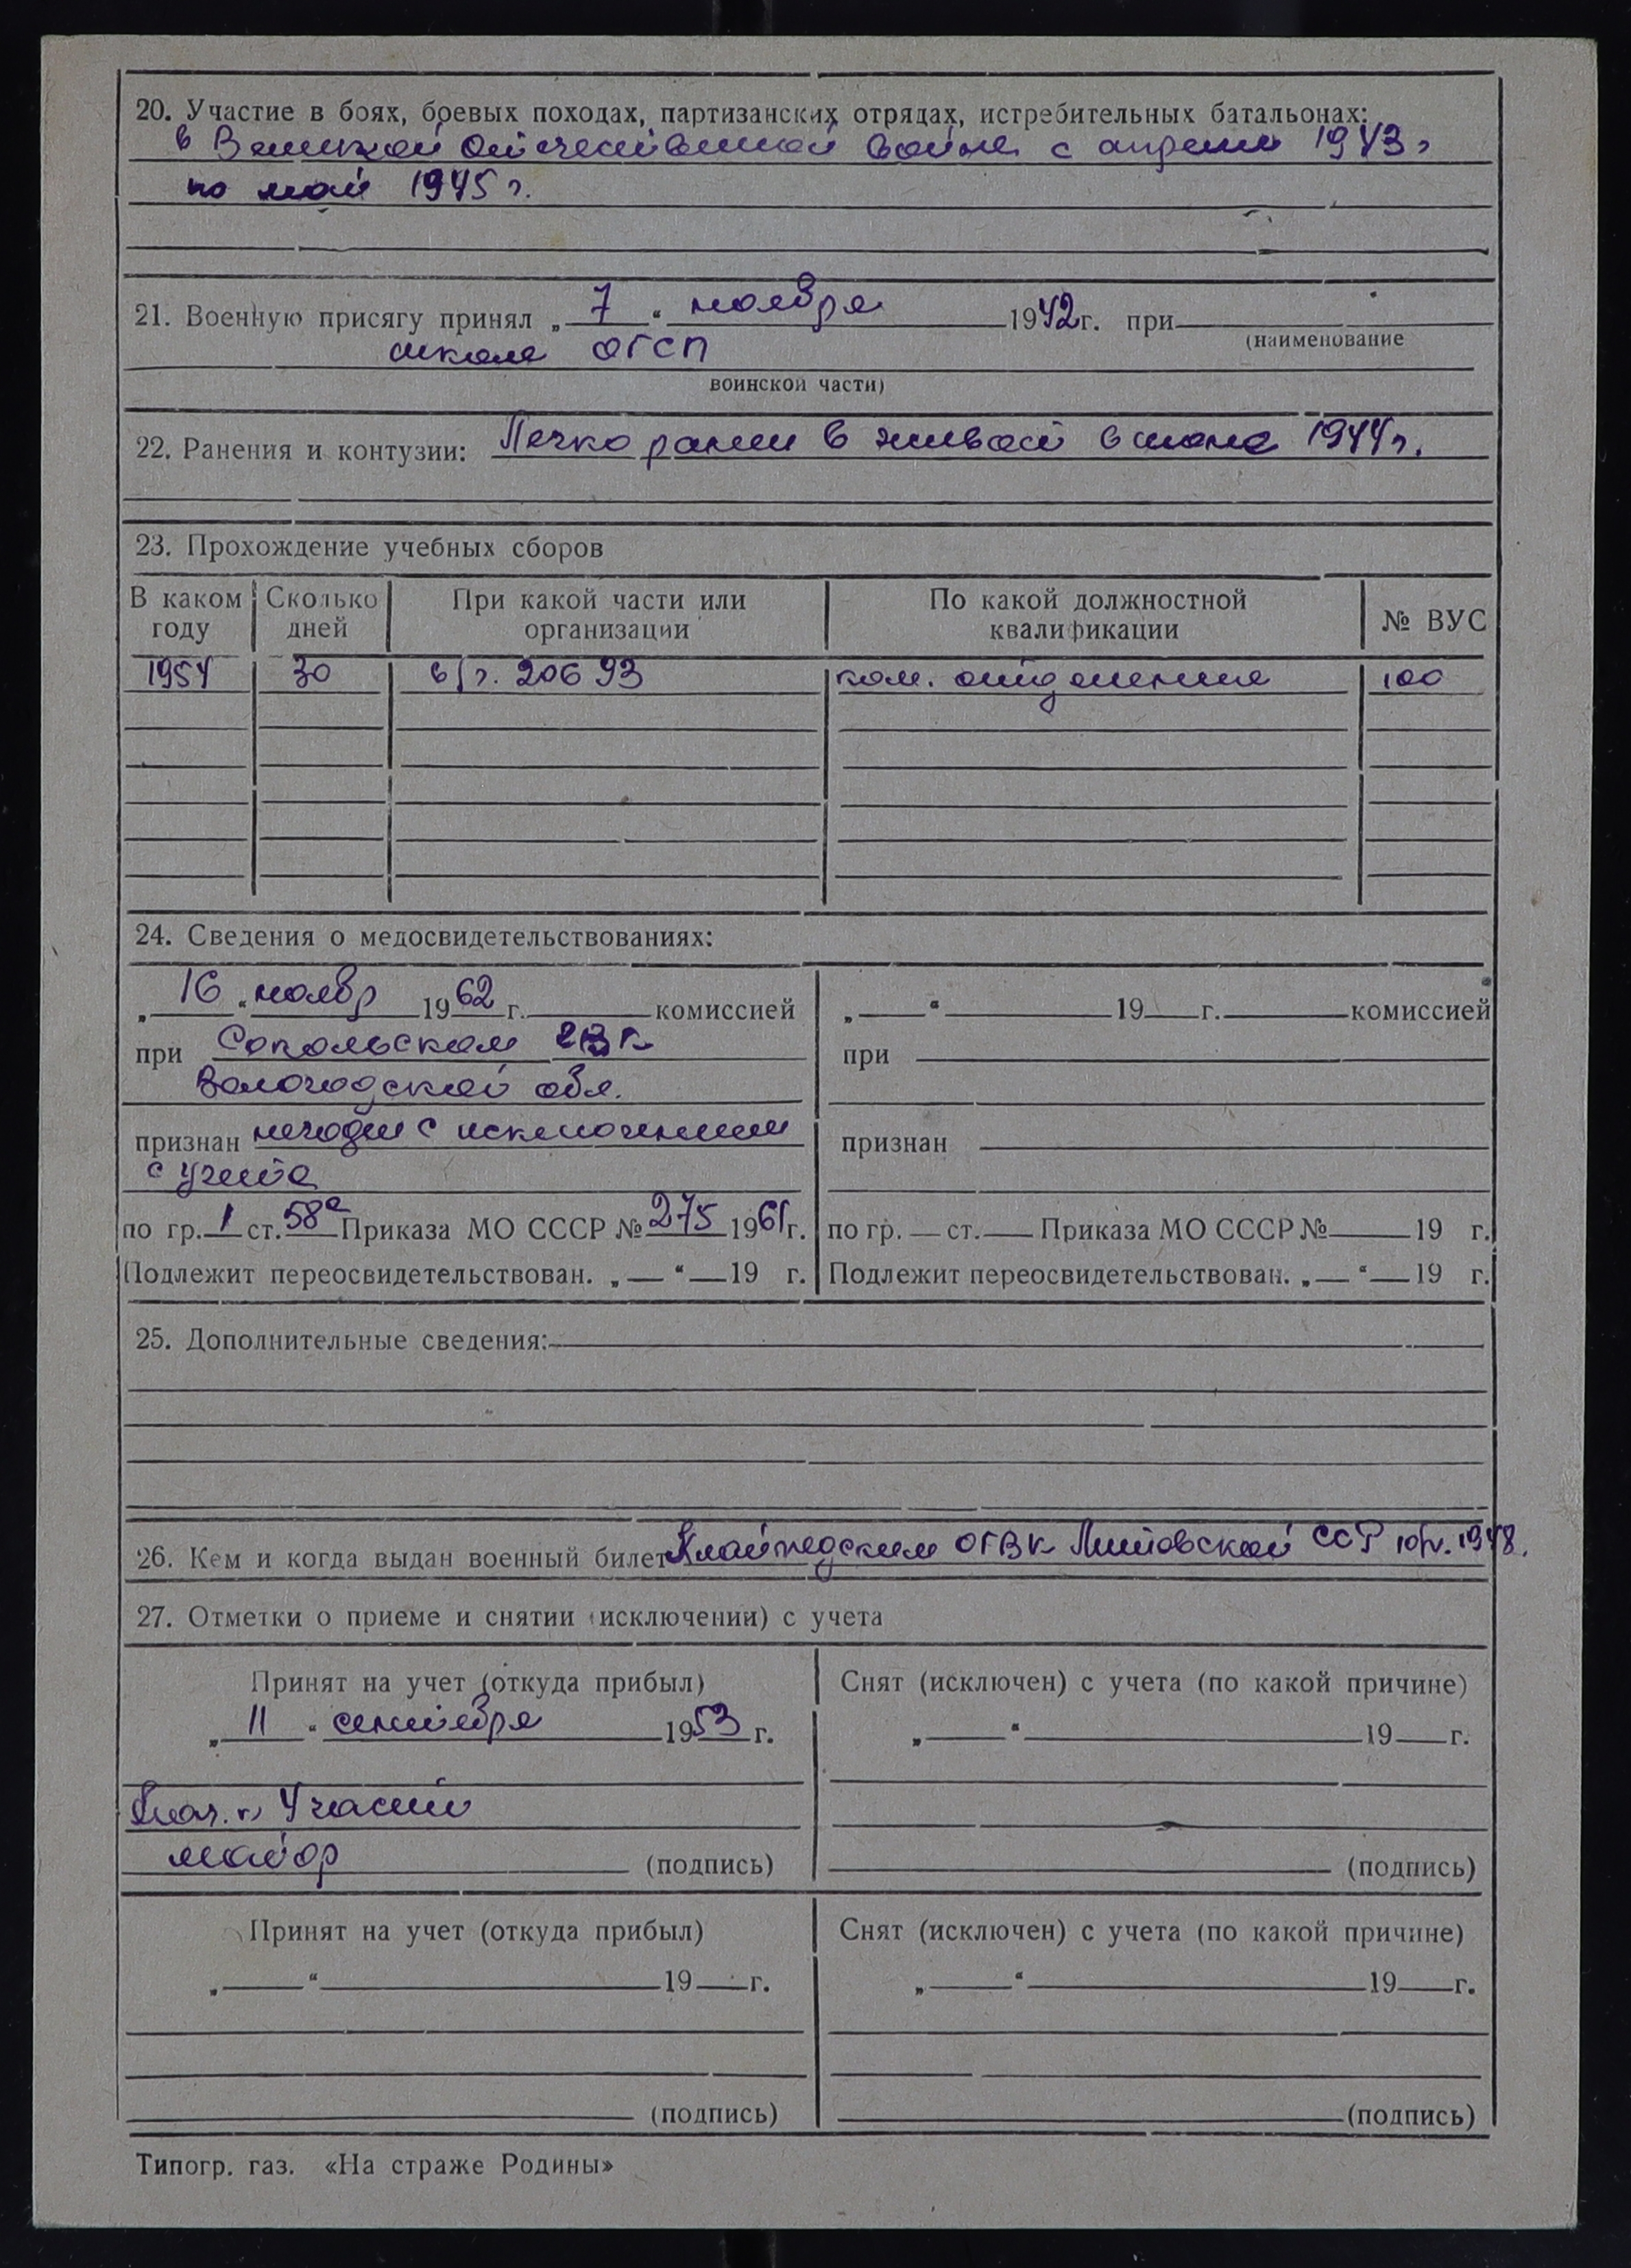 20. Участие в боях, боевых походах, партизанских отрядах, истребительных батальонах:
в Великой Отечественной войне с апреля 1943 г
по май 1945 г.
21. Военную присягу принял „ 7 “ ноября 1942 г. при
(наименование
школе ОГСП
воинской части)
22. Ранения и контузии: Легко ранен в живот в 1944 г.
23. Прохождение учебных сборов
В каком году Сколько дней При какой части или организации По какой должностной квалификации № ВУС
1954 30 в/ч. 20693 ком. отделения 100
24. Сведения о медосвидетельствованиях:
„ 16 “ ноябр 1962 г. комиссией
при Сокольском ГВК
Вологодской обл.
признан негоден с исключением
с учета
по гр. 1 ст. 58а Приказа МО СССР № 275 1961 г.
Подлежит переосвидетельствован. „ “ 19 г.
„ “ 19 г. комиссией
при
признан
по гр. ст. Приказа МО СССР № 19 г.
Подлежит переосвидетельствован. „ “ 19 г.
25. Дополнительные сведения:
26. Кем и когда выдан военный билет Клайпедским ОГВК Литовской ССР 10/IV. 1948.
27. Отметки о приеме и снятии (исключении) с учета
Принят на учет (откуда прибыл)
„ 11 “ сентября 1953 г.
Нач. Части
майор (подпись)
Снят (исключен) с учета (по какой причине)
„ “ 19 г.
(подпись)
Принят на учет (откуда прибыл)
„ “ 19 г.
(подпись)
Снят (исключен) с учета (по какой причине)
„ “ 19 г.
(подпись)
Типогр. газ. «На страже Родины»